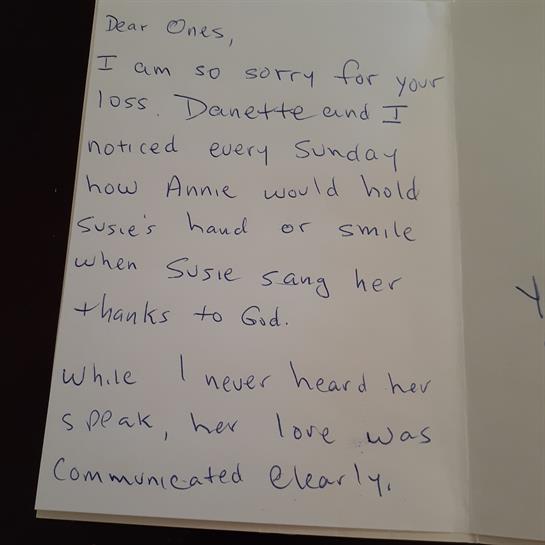 Dear Ones,
I am so sorry for your
loss. Danette and I
noticed every Sunday
how Annie would hold
Susie's hand or smile
when Susie sang her
thanks to God.
While I never heard her
speak, her love was
communicated clearly.